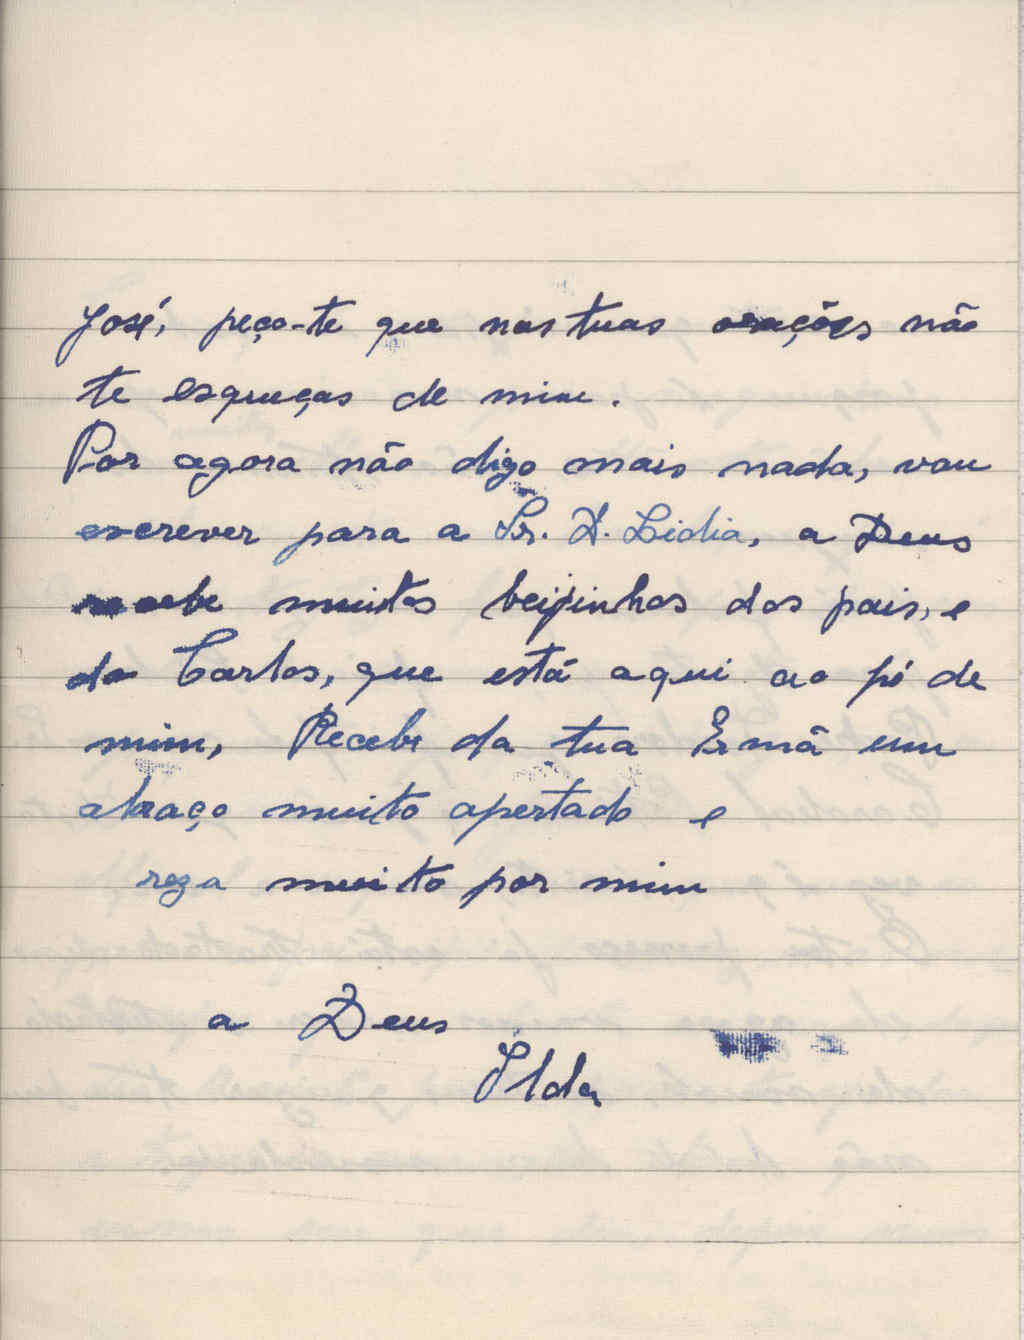 José, peço-te que nas tuas orações não
te esqueças de mim.
Por agora não digo mais nada, vou
escrever para a Sr. D. Lidia, a Deus
recebe muitos beijinhos dos pais, e
do Carlos, que está aqui ao pé de
mim, Recebe da tua Ermã um
abraço muito apertado e
reza muito por mim
a Deus
Ilda